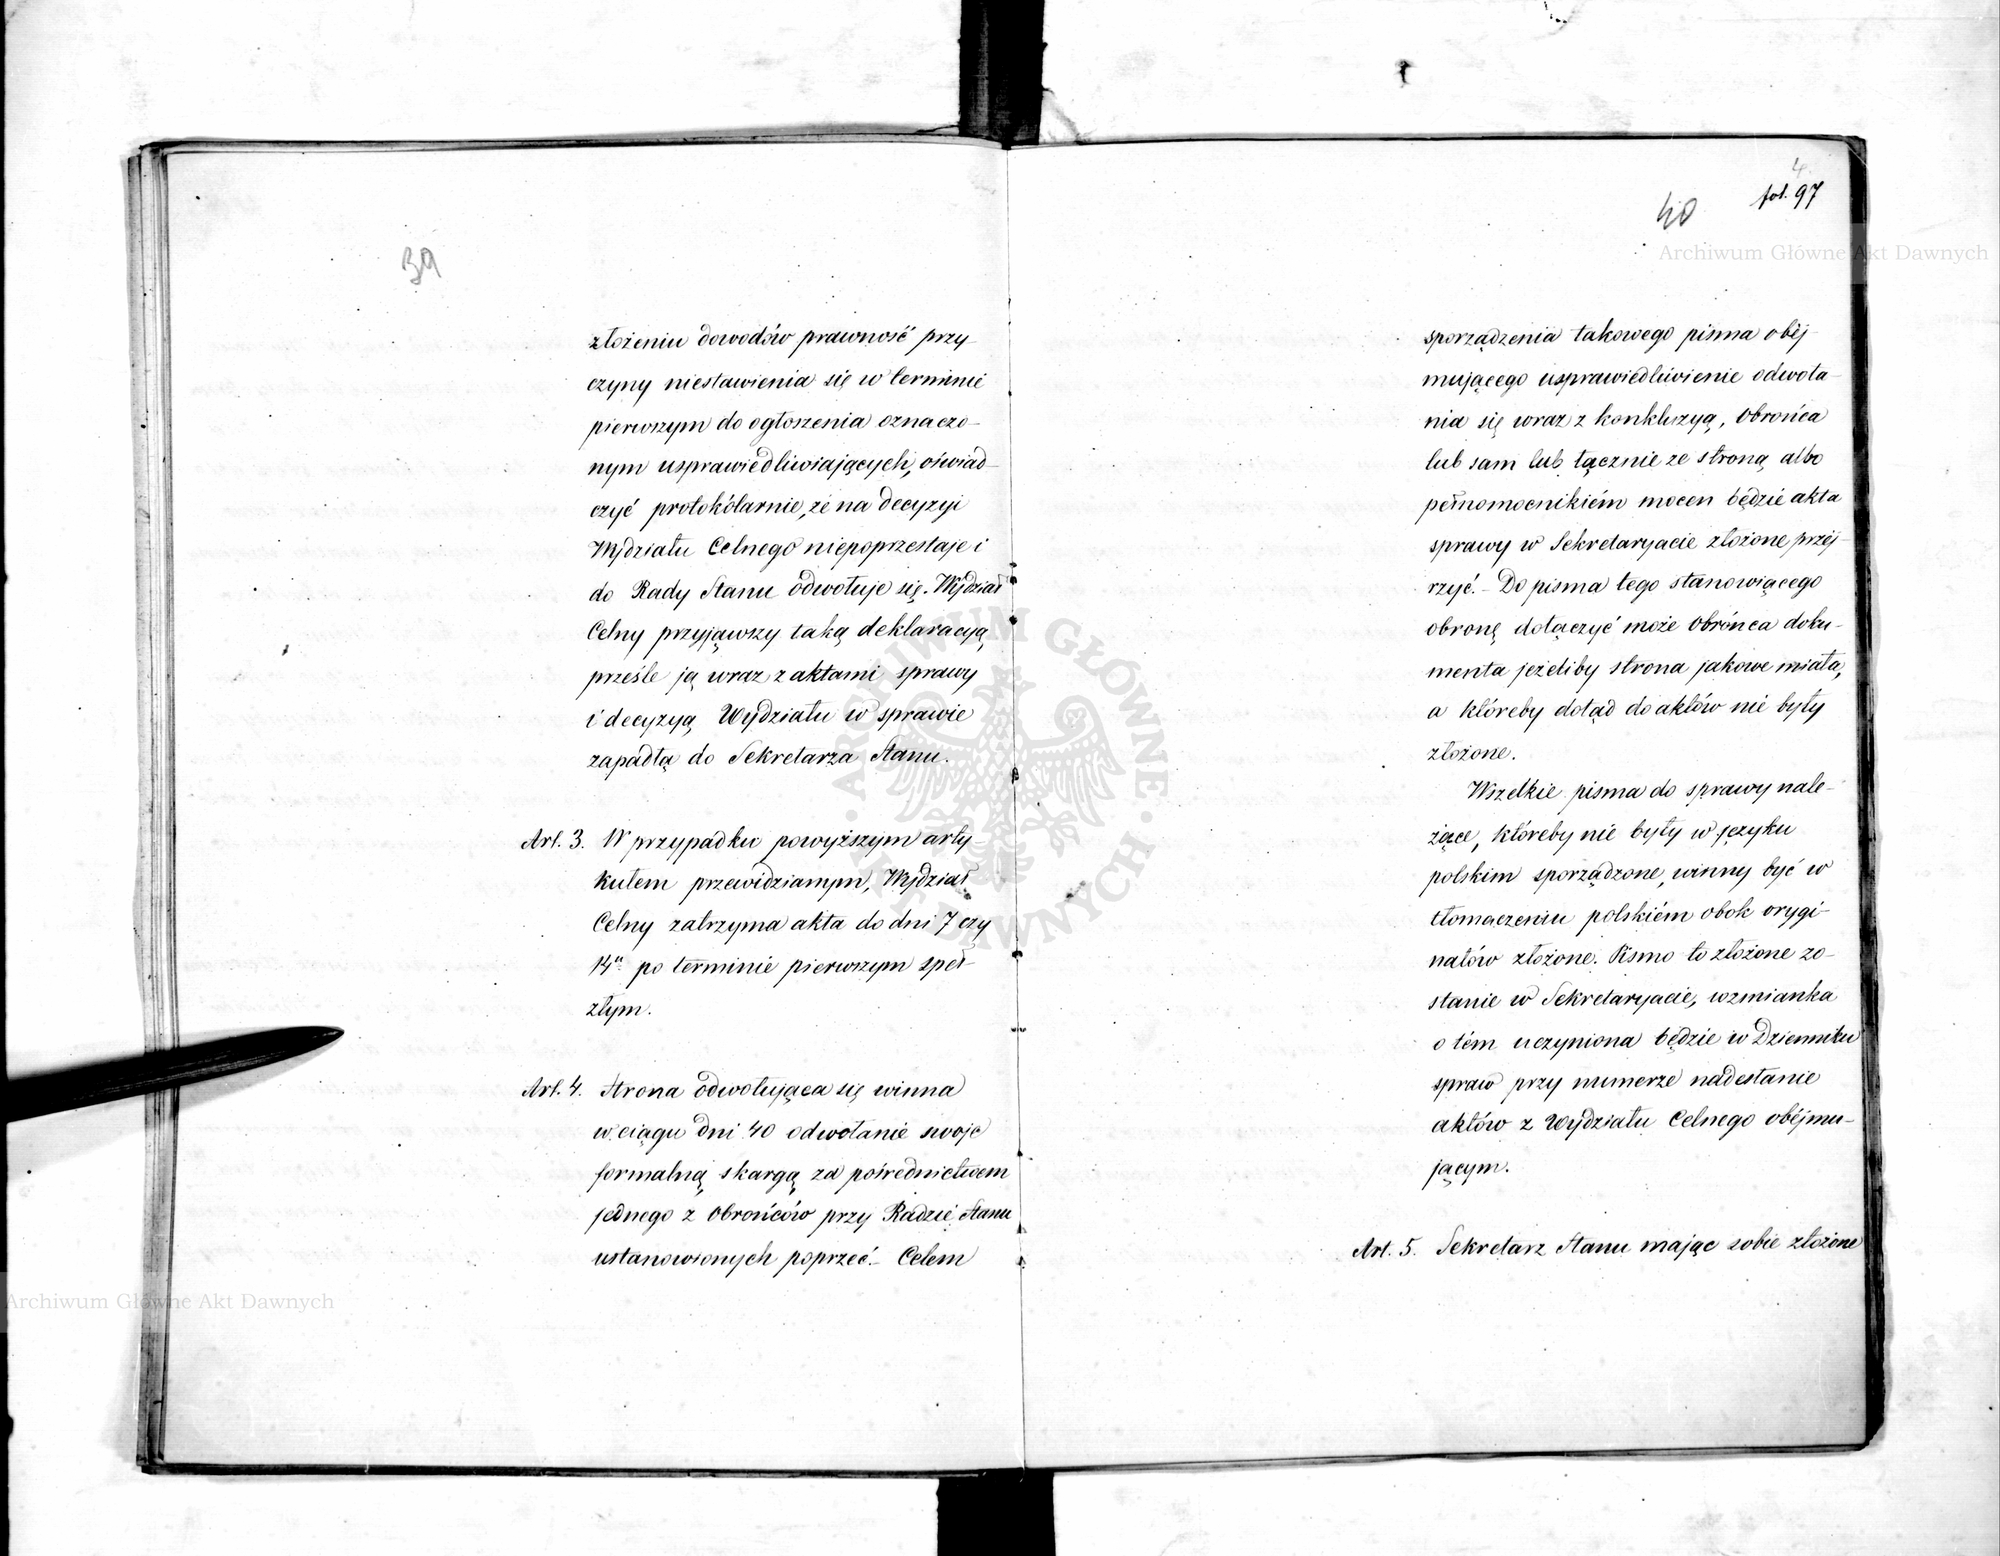 39
złożeniu dowodów prawność przy-
czyny niestawienia się w terminie
pierwszym do ogłoszenia oznaczo-
nym usprawiedliwiających, oświad-
czyć protokólarnie, że na decyzyi
Wydziału Celnego niepoprzestaje i
do Rady Stanu odwołuje się. Wydział
Celny przyjąwszy taką deklaracyą
prześle ją wraz z aktami sprawy
i decyzyą Wydziału w sprawie
zapadłą do Sekretarza Stanu.
Art. 3. W przypadku powyższym arty-
kułem przewidzianym, Wydział
Celny zatrzyma akta do dni 7 czy
14u po terminie pierwszym speł-
złym.
Art. 4. Strona odwołująca się winna
w ciągu dni 40 odwołanie swoje
formalną skargą za pośrednictwem
jednego z Obrońców przy Radzie Stanu
ustanowionych poprzeć. Celem
4
fol. 97
40
sporządzenia takowego pisma obéj-
mującego usprawiedliwienie odwoła-
nia się wraz z konkluzyą, Obrońca
lub sam lub łącznie ze stroną albo
pełnomocnikiém mocen będzie akta
sprawy w Sekretaryacie złożone przéj-
rzyć. - Do pisma tego stanowiącego
obronę dołączyć może Obrońca doku-
menta jeżeliby strona jakowe miała,
a któreby dotąd do aktów nie były
złożone.
Wszelkie pisma do sprawy nale-
żące, któreby nie były w języku
polskim sporządzone, winny być w
tłomaczeniu polskiém obok orygi-
nałów złożone. Pismo to złożone zo-
stanie w Sekretaryacie, wzmianka
o tém uczyniona będzie w Dzienniku
spraw przy numerze nadesłanie
aktów z Wydziału Celnego obéjmu-
jącym.
Art. 5. Sekretarz Stanu mając sobie złożone
Archiwum Główne Akt Dawnych
Archiwum Główne Akt Dawnych
ARCHIWUM GŁÓWNE AKT DAWNYCH